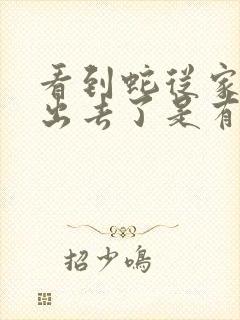 看到蛇从家
出去了是有
招少鸣